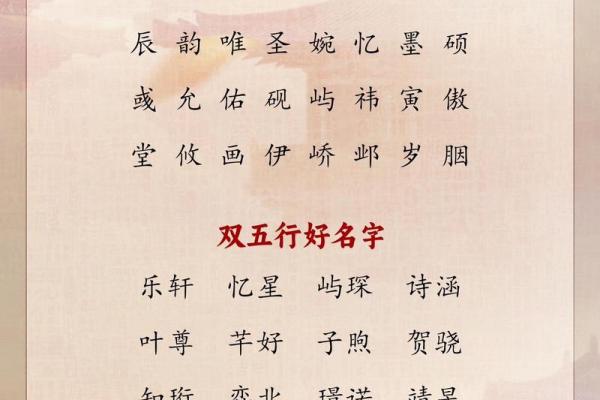 辰 韵 唯 圣 婉 忆 墨 硕
彧 允 佑 砚 屿 祎 寅 傲
堂 攸 画 伊 峤 邺 岁 胭
双五行好名字
乐轩 忆星 屿琛 诗涵
叶尊 芊好 子煦 贺骁
知珩 奕北 璟诺 靖昇